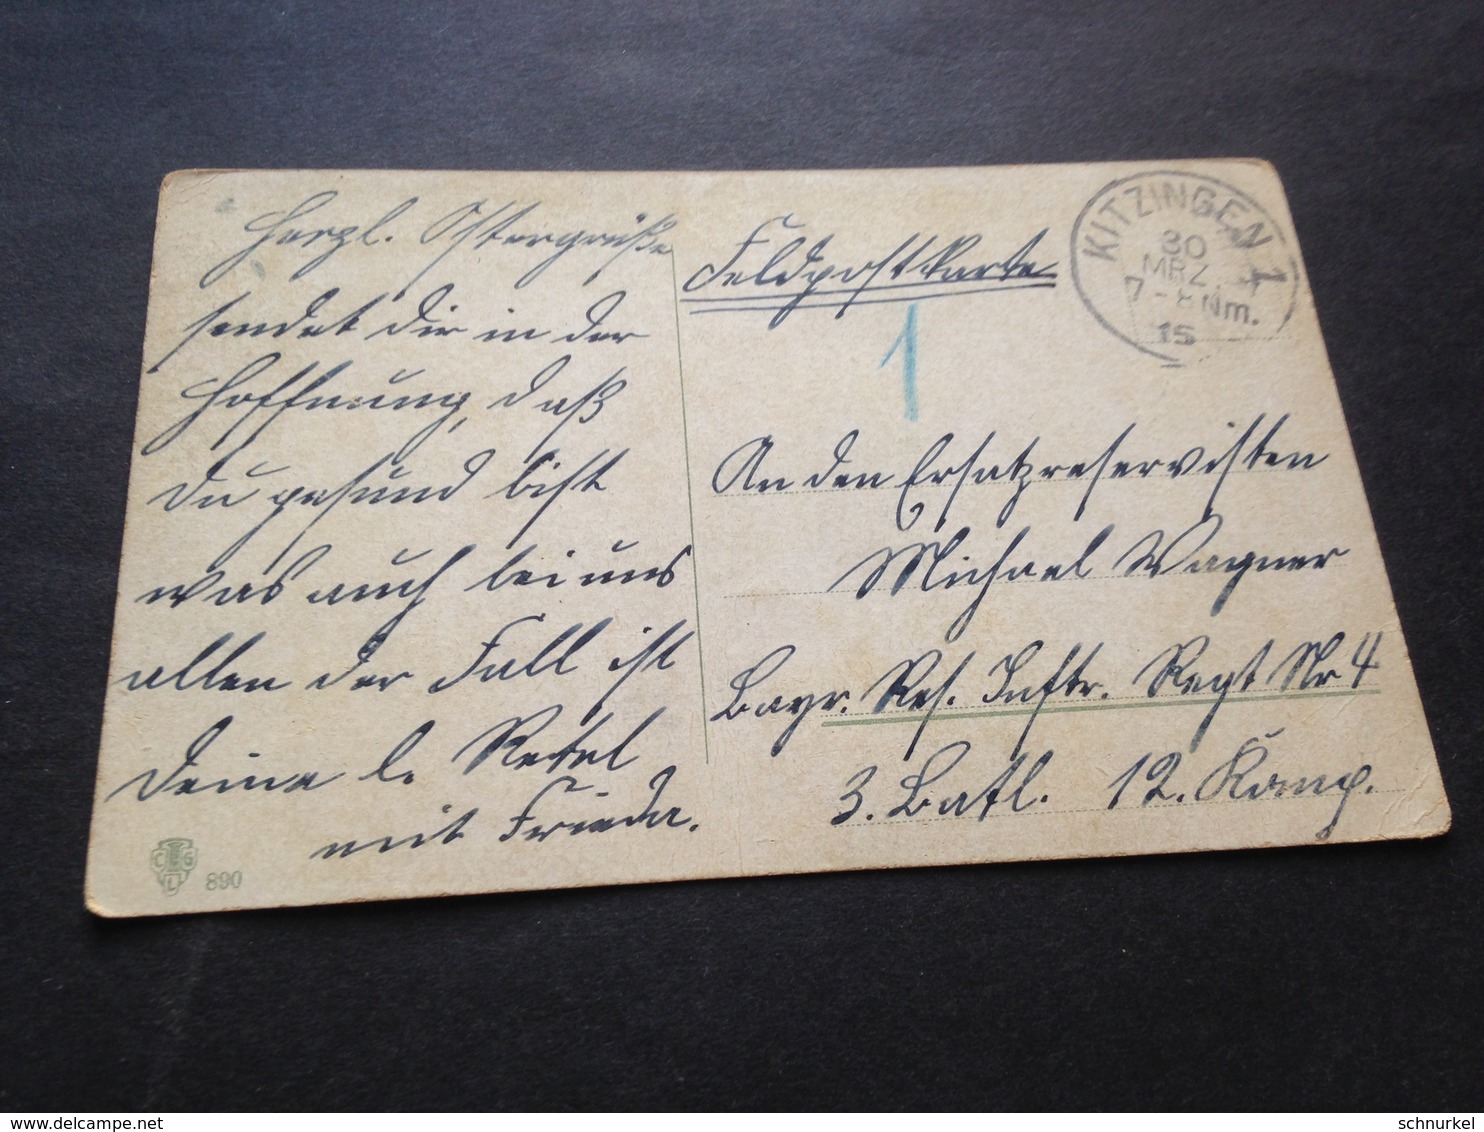 Herzl. Ostergrüße
sendet dir in der
Hoffnung, daß
du gesund bist
was auch bei uns
allen der Fall ist
Deine l.
mit Frieda.
CEG
L
890
Feldpostkarte
1
KITZINGEN 1
30
MRZ
7-8 Nm.
15
An den Ersatzreservisten
Michael Wagner
Bayr. Res. Inftr. Regt Nr 4
3. Batl. 12. Komp.
schnurkel